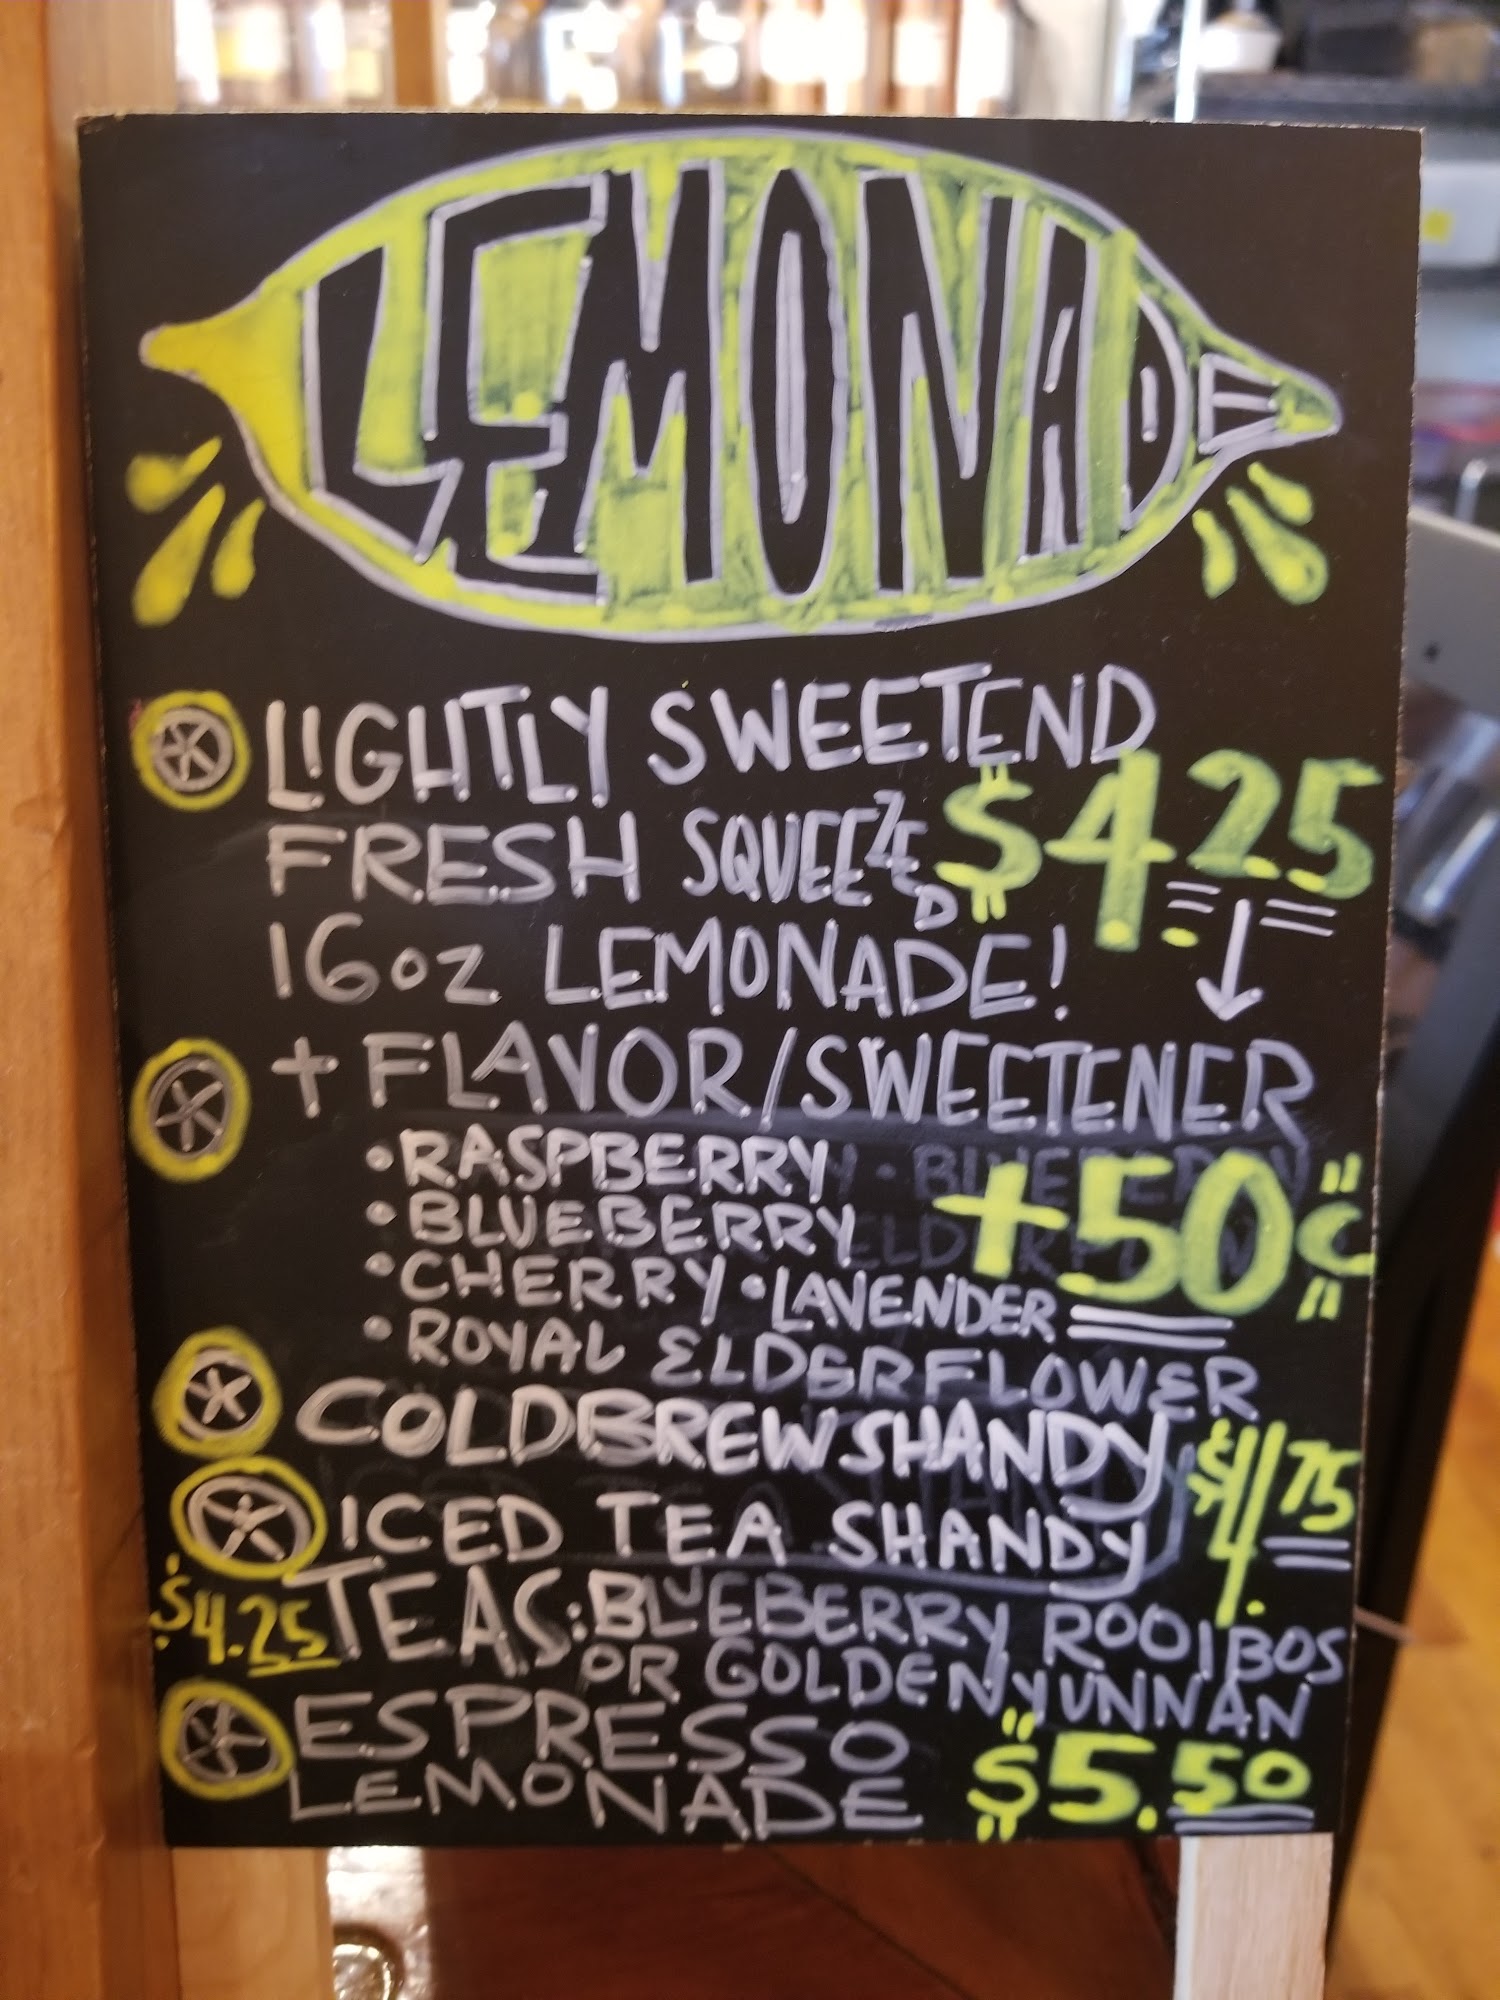 LEMONADE
LIGHTLY SWEETEND
FRESH SQUEEZED $4.25
16oz LEMONADE!
+ FLAVOR/SWEETENER
• RASPBERRY
• BLUEBERRY +50¢
• CHERRY • LAVENDER
• ROYAL ELDERFLOWER
COLDBREW SHANDY $4.75
ICED TEA SHANDY
$4.25 TEAS: BLUEBERRY ROOIBOS
OR GOLDEN YUNNAN
ESPRESSO
LEMONADE $5.50